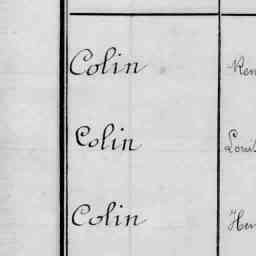 Colin
Colin
Colin